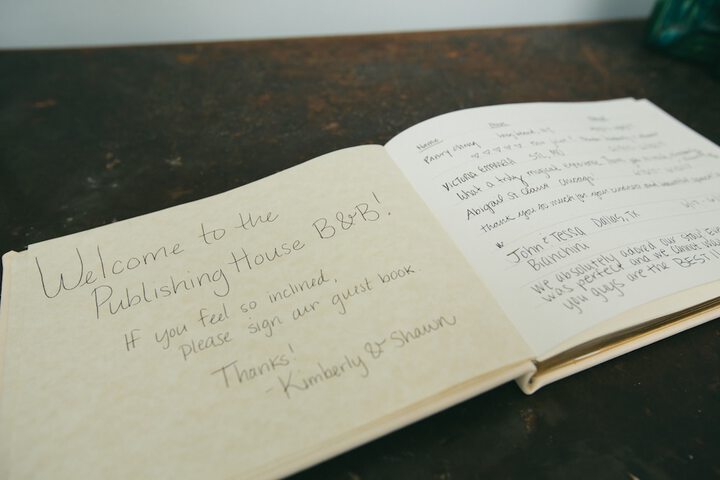 Welcome to the
Publishing House B&B!
If you feel so inclined,
please sign our guest book.
Thanks!
- Kimberly & Shawn
Name
VICTORIA STL, MO
What a truly magical experience. Thank you
Abigail St Claire Chicago!
Thank you so much for your kindness and
John & Tessa Dallas, TX
Bianchini
We absolutely adored our stay! Eve
was perfect and we cannot wai
you guys are the BEST!!